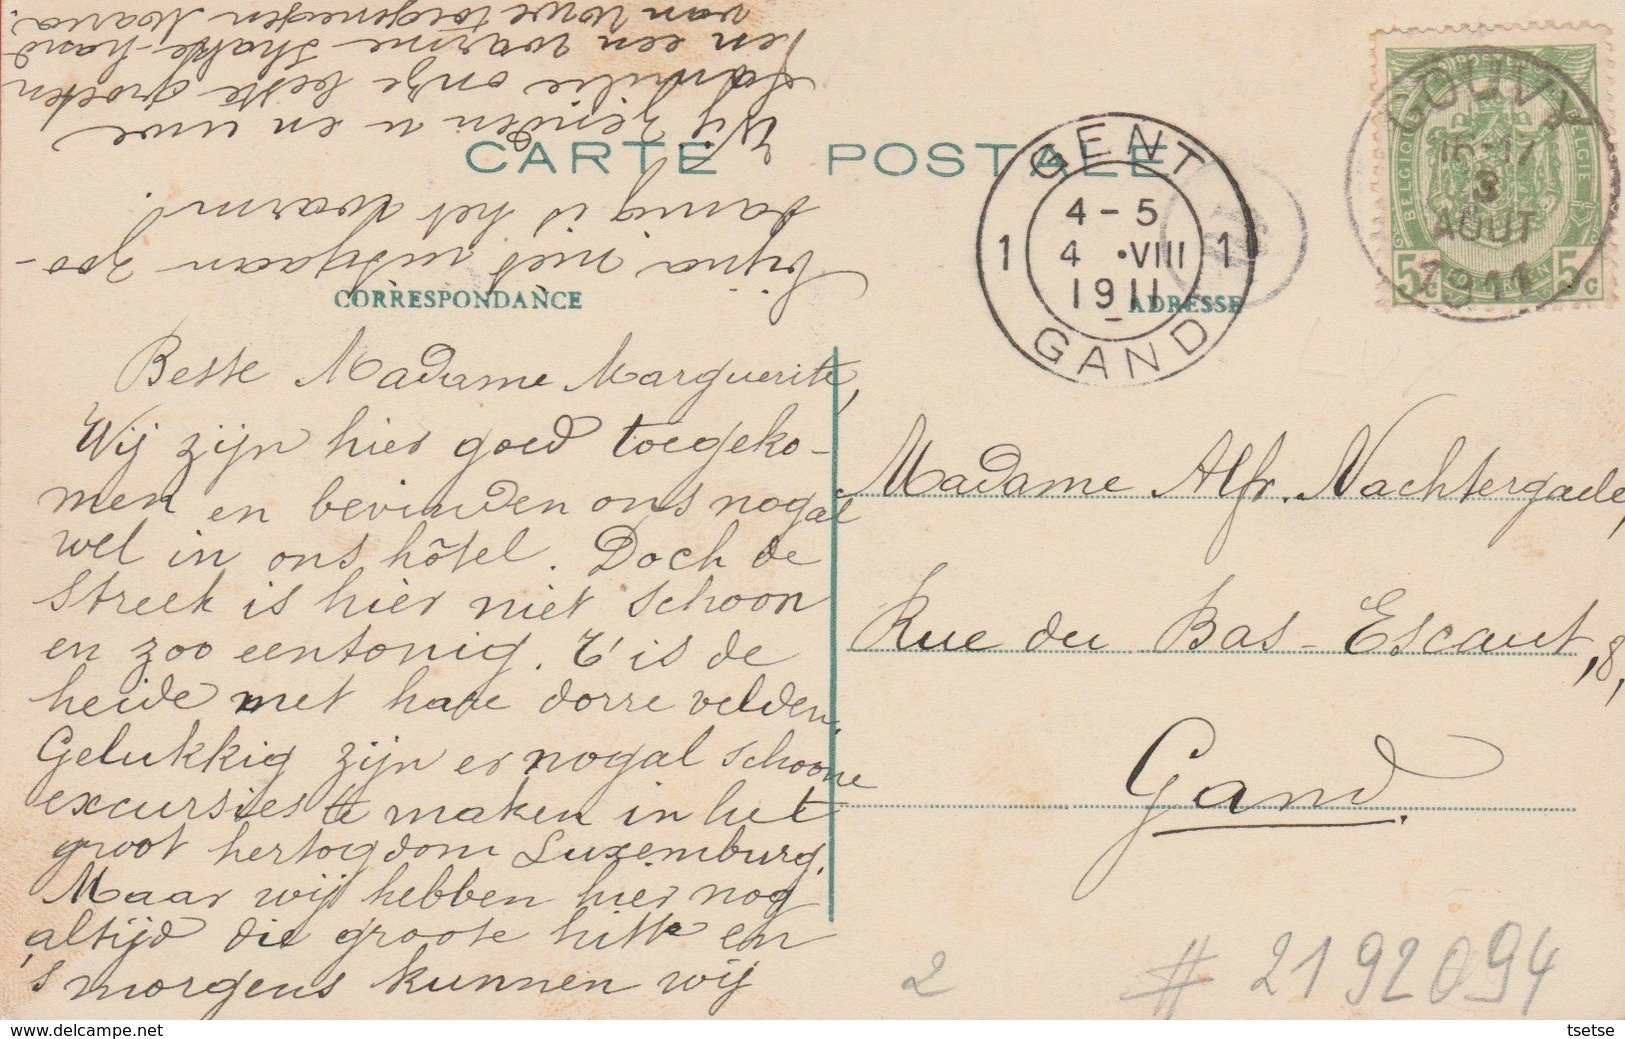 CARTE POSTALE
CORRESPONDANCE
ADRESSE
Beste Madame Marguerite,
Wij zijn hier goed toegeko-
men en bevinden ons nogal
wel in ons hôtel. Doch de
streek is hier niet schoon
en zoo eentonig. 't is de
heide met hare dorre velden.
Gelukkig zijn er nogal schoone
excursies te maken in het
groot hertogdom Luxemburg.
Maar wij hebben hier nog
altijd die groote hitte en
's morgens kunnen wij
bijna niet uitgaan zoo-
danig is het warm.
Wij zenden u en uwe
familie onze beste groeten
en een warme shake-hand
van uwe toegenegen Maria.
Madame Alfr. Nachtergaele,
Rue du Bas-Escaut, 8,
Gand.
GENT
4-5
1 4 •VIII 1
1911
GAND
GOUVY
16-17
3
AOUT
1911
BELGIQUE
BELGIE
5c 5c
2
# 2192094
tsetse